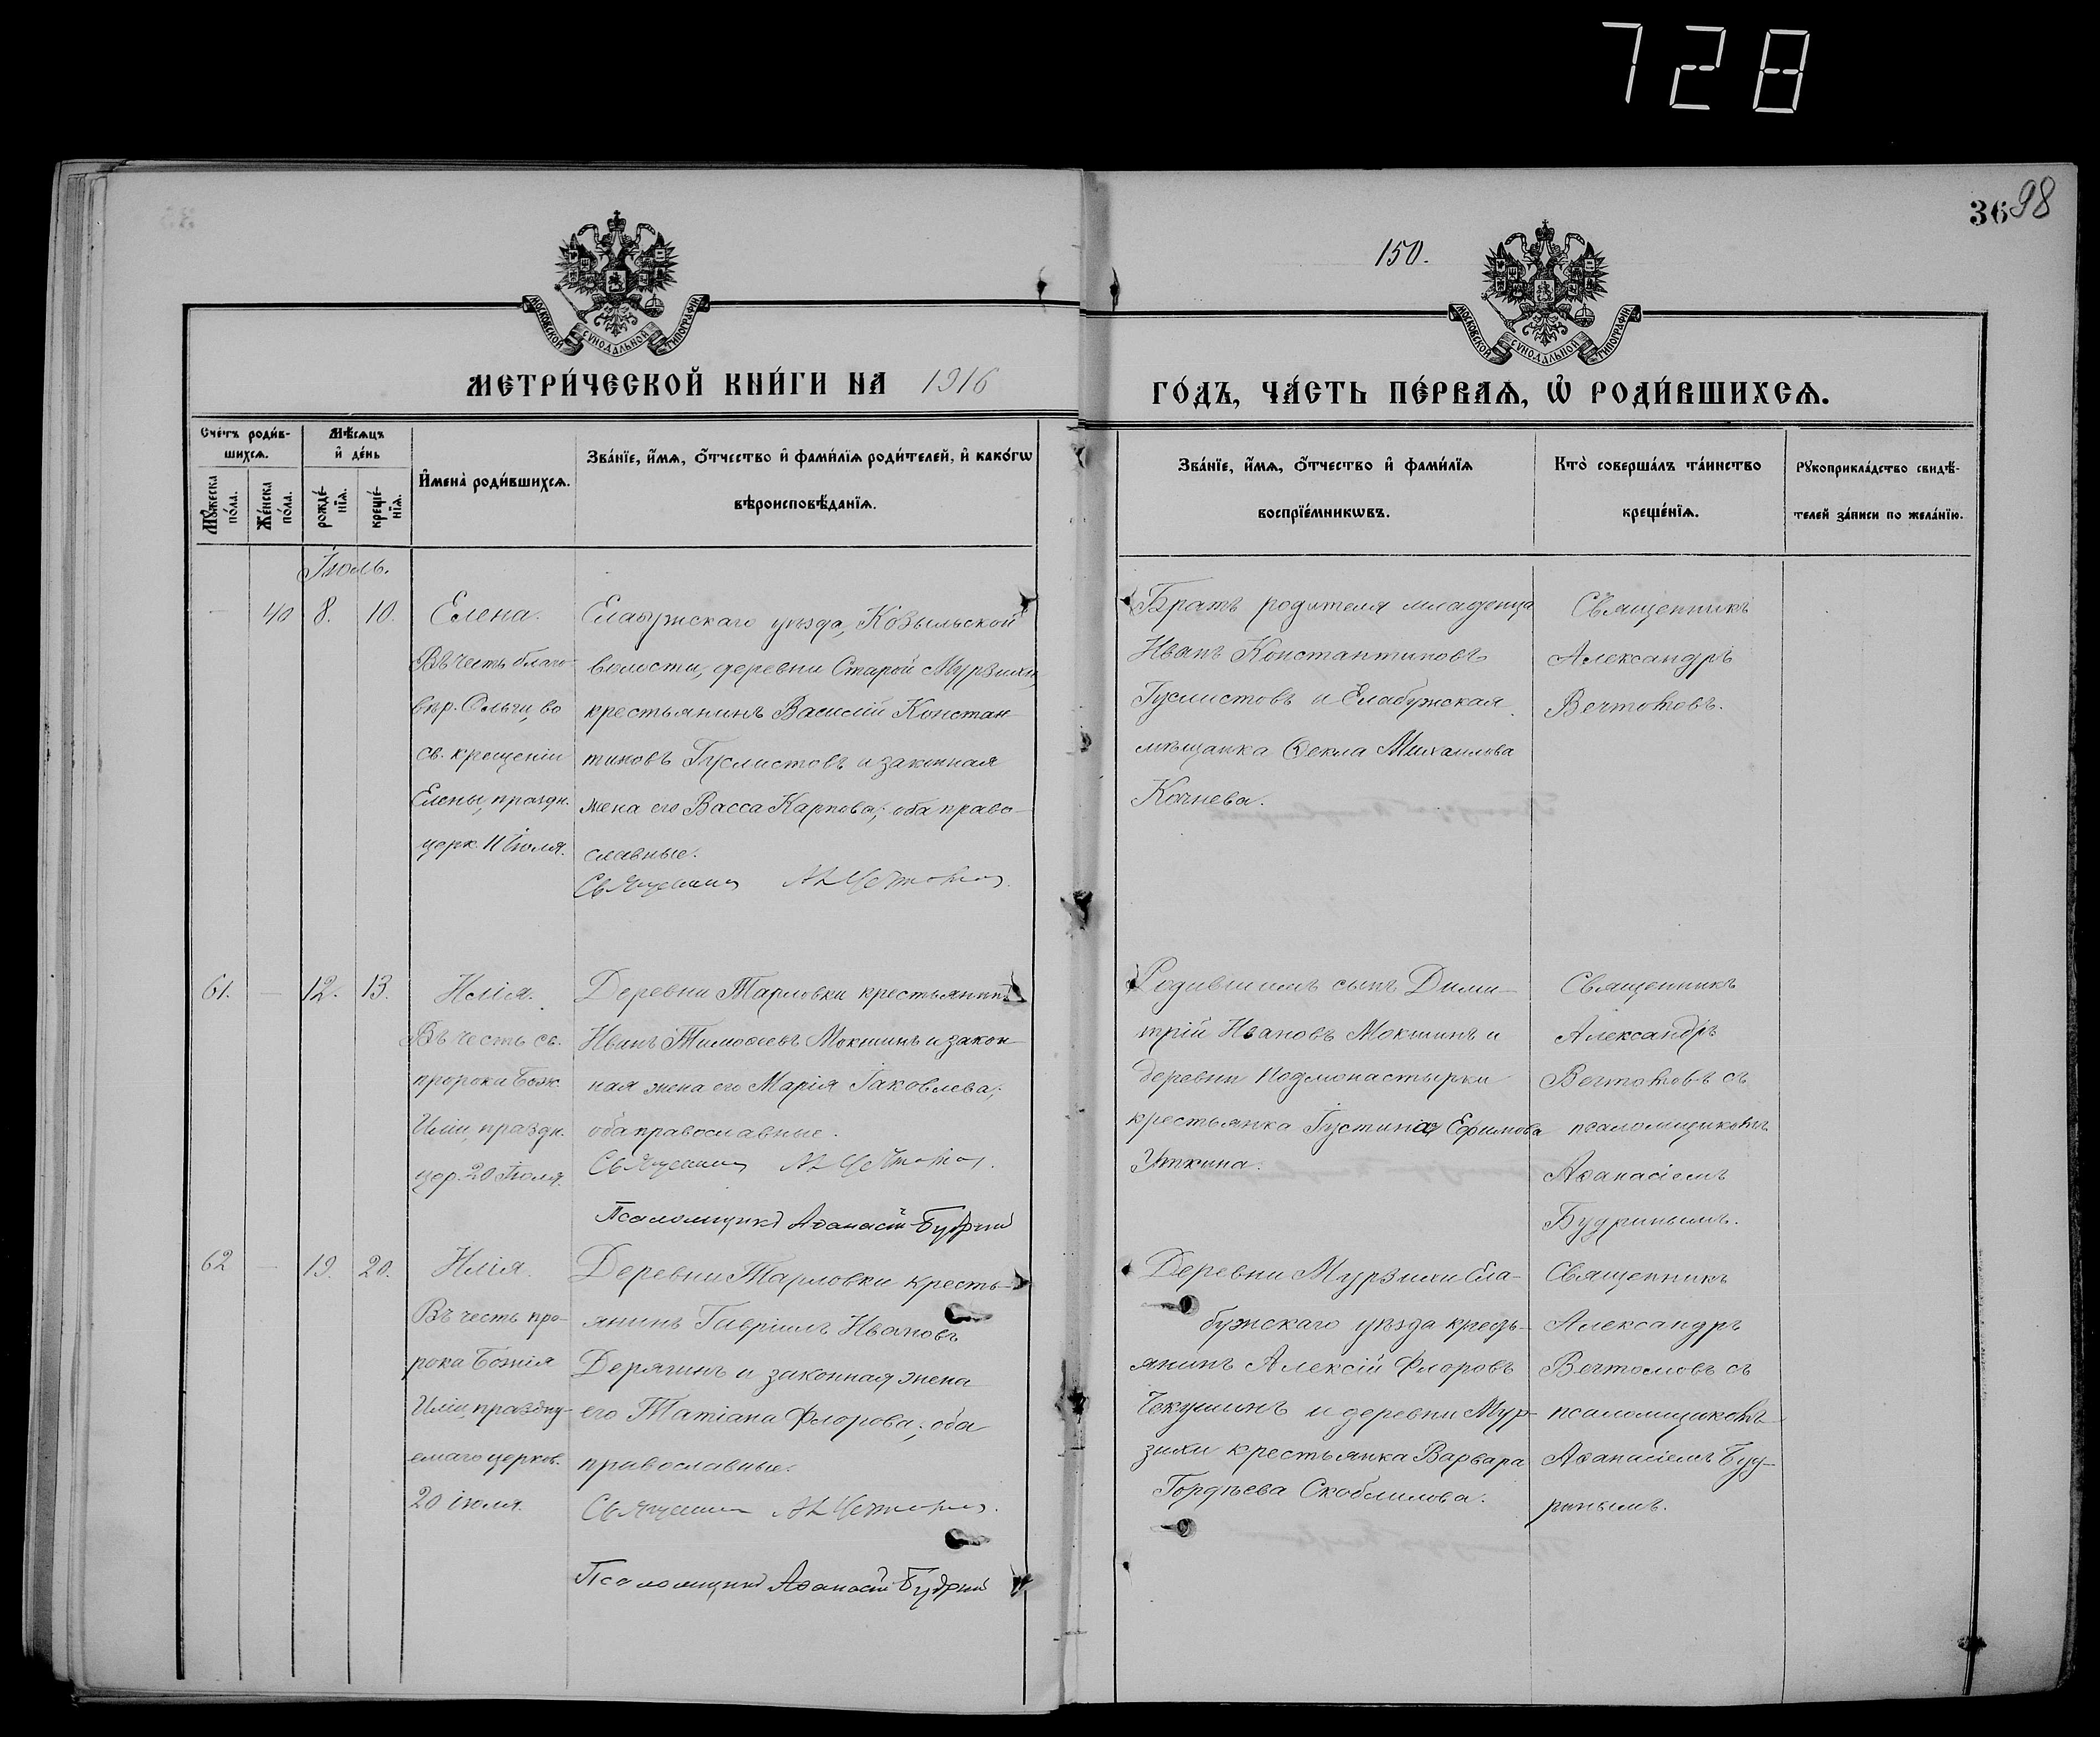 728
3698
150.
МОСКОВСКОЙ СѴНОДАЛЬНОЙ ТИПОГРАФІИ
МОСКОВСКОЙ СѴНОДАЛЬНОЙ ТИПОГРАФІИ
МЕТРИ́ЧЕСКОЙ КНИ́ГИ НА 1916
ГО́ДЪ, ЧА́СТЬ ПЕ́РВАѦ, Ѡ҆ РОДИ́ВШИХСѦ.
Сче́тъ роди́в-
шихсѧ.
Мꙋ́жеска
по́ла.
Же́нска
по́ла.
Мѣ́сѧцъ
и҆ де́нь
рожде́-
нїѧ.
креще́-
нїѧ.
И҆мена̀ роди́вшихсѧ.
Зва́нїе, и҆́мѧ, ѻ҆́тчество и҆ фами́лїѧ роди́телей, и҆ како́гѡ
вѣроисповѣ́данїѧ.
Зва́нїе, и҆́мѧ, ѻ҆́тчество и҆ фами́лїѧ
воспрїе́мникѡвъ.
Кто̀ соверша́лъ та́инство
креще́нїѧ.
Рꙋкоприкла́дство свидѣ́-
телей за́писи по жела́нїю.
Іюль.
— 40 8. 10.
Елена.
Въ честь благо-
вѣр. Ольги, во
св. крещеніи
Елены, праздн.
церк. 11 Іюля.
Елабужскаго уѣзда, Козыльской
волости, деревни Старой Мурзихи,
крестьянинъ Василій Констан-
тиновъ Гуслистовъ и законная
жена его Васса Карпова; оба право-
славные.
Священникъ Ал. Вечтомовъ.
Братъ родителя младенца
Иванъ Константиновъ
Гуслистовъ и Елабужская
мѣщанка Ѳекла Михаилова
Кочнева.
Священникъ
Александръ
Вечтомовъ.
61. — 12. 13.
Илія.
Въ честь св.
пророка Бож.
Иліи, праздн.
цер. 20 Іюля.
Деревни Тарловки крестьянинъ
Иванъ Тимоѳеевъ Мокшинъ и закон-
ная жена его Марія Іаковлева;
оба православные.
Священникъ Ал. Вечтомовъ.
Псаломщикъ Аѳанасій Будринъ
Родившимъ сынъ Дими-
трій Ивановъ Мокшинъ и
деревни Подмонастырки
крестьянка Іустинія Ефимова
Уткина.
Священникъ
Александръ
Вечтомовъ съ
псаломщикомъ
Аѳанасіемъ
Будринымъ.
62 — 19. 20.
Илія.
Въ честь про-
рока Божія
Иліи, праздну-
емаго церков.
20 іюля.
Деревни Тарловки кресть-
янинъ Гавріилъ Ивановъ
Дерягинъ и законная жена
его Татіана Флорова; оба
православные.
Священникъ Ал. Вечтомовъ.
Псаломщикъ Аѳанасій Будринъ
Деревни Мурзихи Ела-
бужскаго уѣзда кресть-
янинъ Алексій Флоровъ
Чекушинъ и деревни Мур-
зихи крестьянка Варвара
Гордѣева Скоблилова.
Священникъ
Александръ
Вечтомовъ съ
псаломщикомъ
Аѳанасіемъ Буд-
ринымъ.